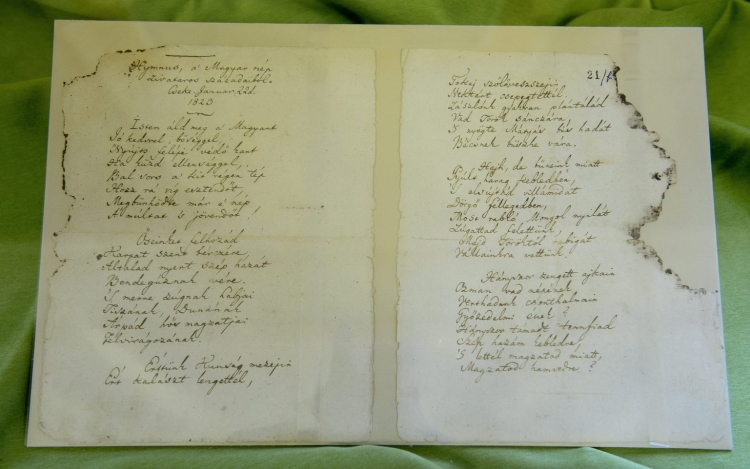 Hymnus, a' Magyar nép
zivataros századaiból.
Cseke Januar. 22d.
1823
Isten áldd meg a' Magyart
Jó kedvvel, bőséggel,
Nyújts feléje védő kart
Ha küzd ellenséggel,
Bal sors a' kit régen tép
Hozz rá víg esztendőt,
Megbünhödte már e' nép
A' múltat 's jövendőt!
Őseinket felhozád
Kárpát szent bérczére
Általad nyert szép hazát
Bendegúznak vére.
'S merre zúgnak habjai
Tiszának, Dunának
Árpád hős magzatjai
Felvirágozának.
Értünk Kunság mezejin
Ért kalászt lengettél,
21/
Tokaj szőlővesszejin
Nektárt csepegtettél.
Zászlónk gyakran plántálád
Vad Török sánczára,
'S nyögte Mátyás bús hadát
Bécsnek büszke vára.
Hajh, de bűneink miatt
Gyúlt harag kebledben,
'S elsújtád villámidat
Dörgő fellegedben,
Most rabló Mongol nyilát
Zúgattad felettünk,
Majd Töröktől rabigát
Vállainkra vettünk.
Hányszor zengett ajkain
Ozman vad népének
Vert hadunk csonthalmain
Győzedelmi ének?
Hányszor támadt tennfiad
Szép hazám kebledre,
'S lettél magzatod miatt,
Magzatod hamvvedre?